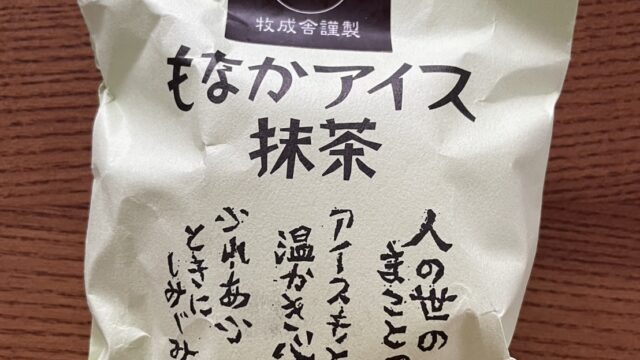 牧成舎謹製
もなかアイス
抹茶
人の世の
まこと
アイスもと
温かき
ふれあふ
ときに
しみじみ